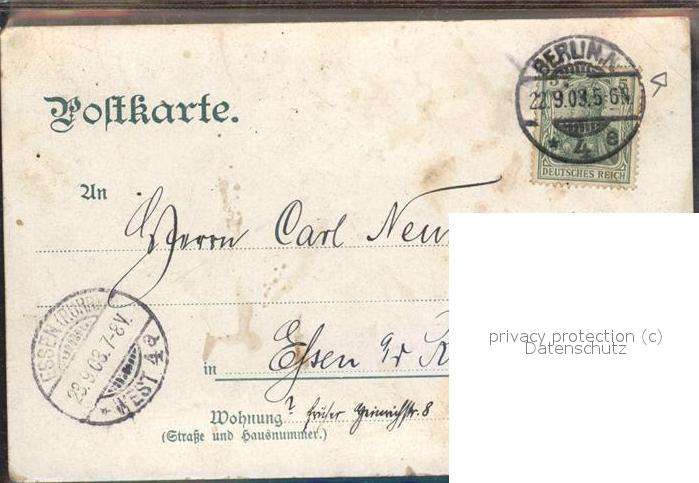 Postkarte.
BERLIN.N.
22.9.03.5-6N.
* 4 e
5
DEUTSCHES REICH
An
Herrn Carl Neu
ESSEN (RUHR)
23.9.03.7-8V.
* WEST 4 d
in Essen a/d R
Wohnung ? früher Heinrichstr. 8
(Straße und Hausnummer.)
privacy protection (c)
Datenschutz